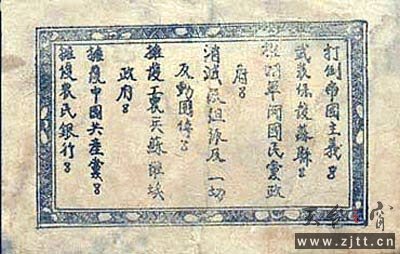 打倒帝國主義!
武裝保護蘇聯!
推翻軍閥國民黨政
府!
消滅改組派及一切
反動團体!
擁護工農兵蘇維埃
政府!
擁護中國共產黨!
擁護農民銀行!
天台之窗
www.zjtt.cn